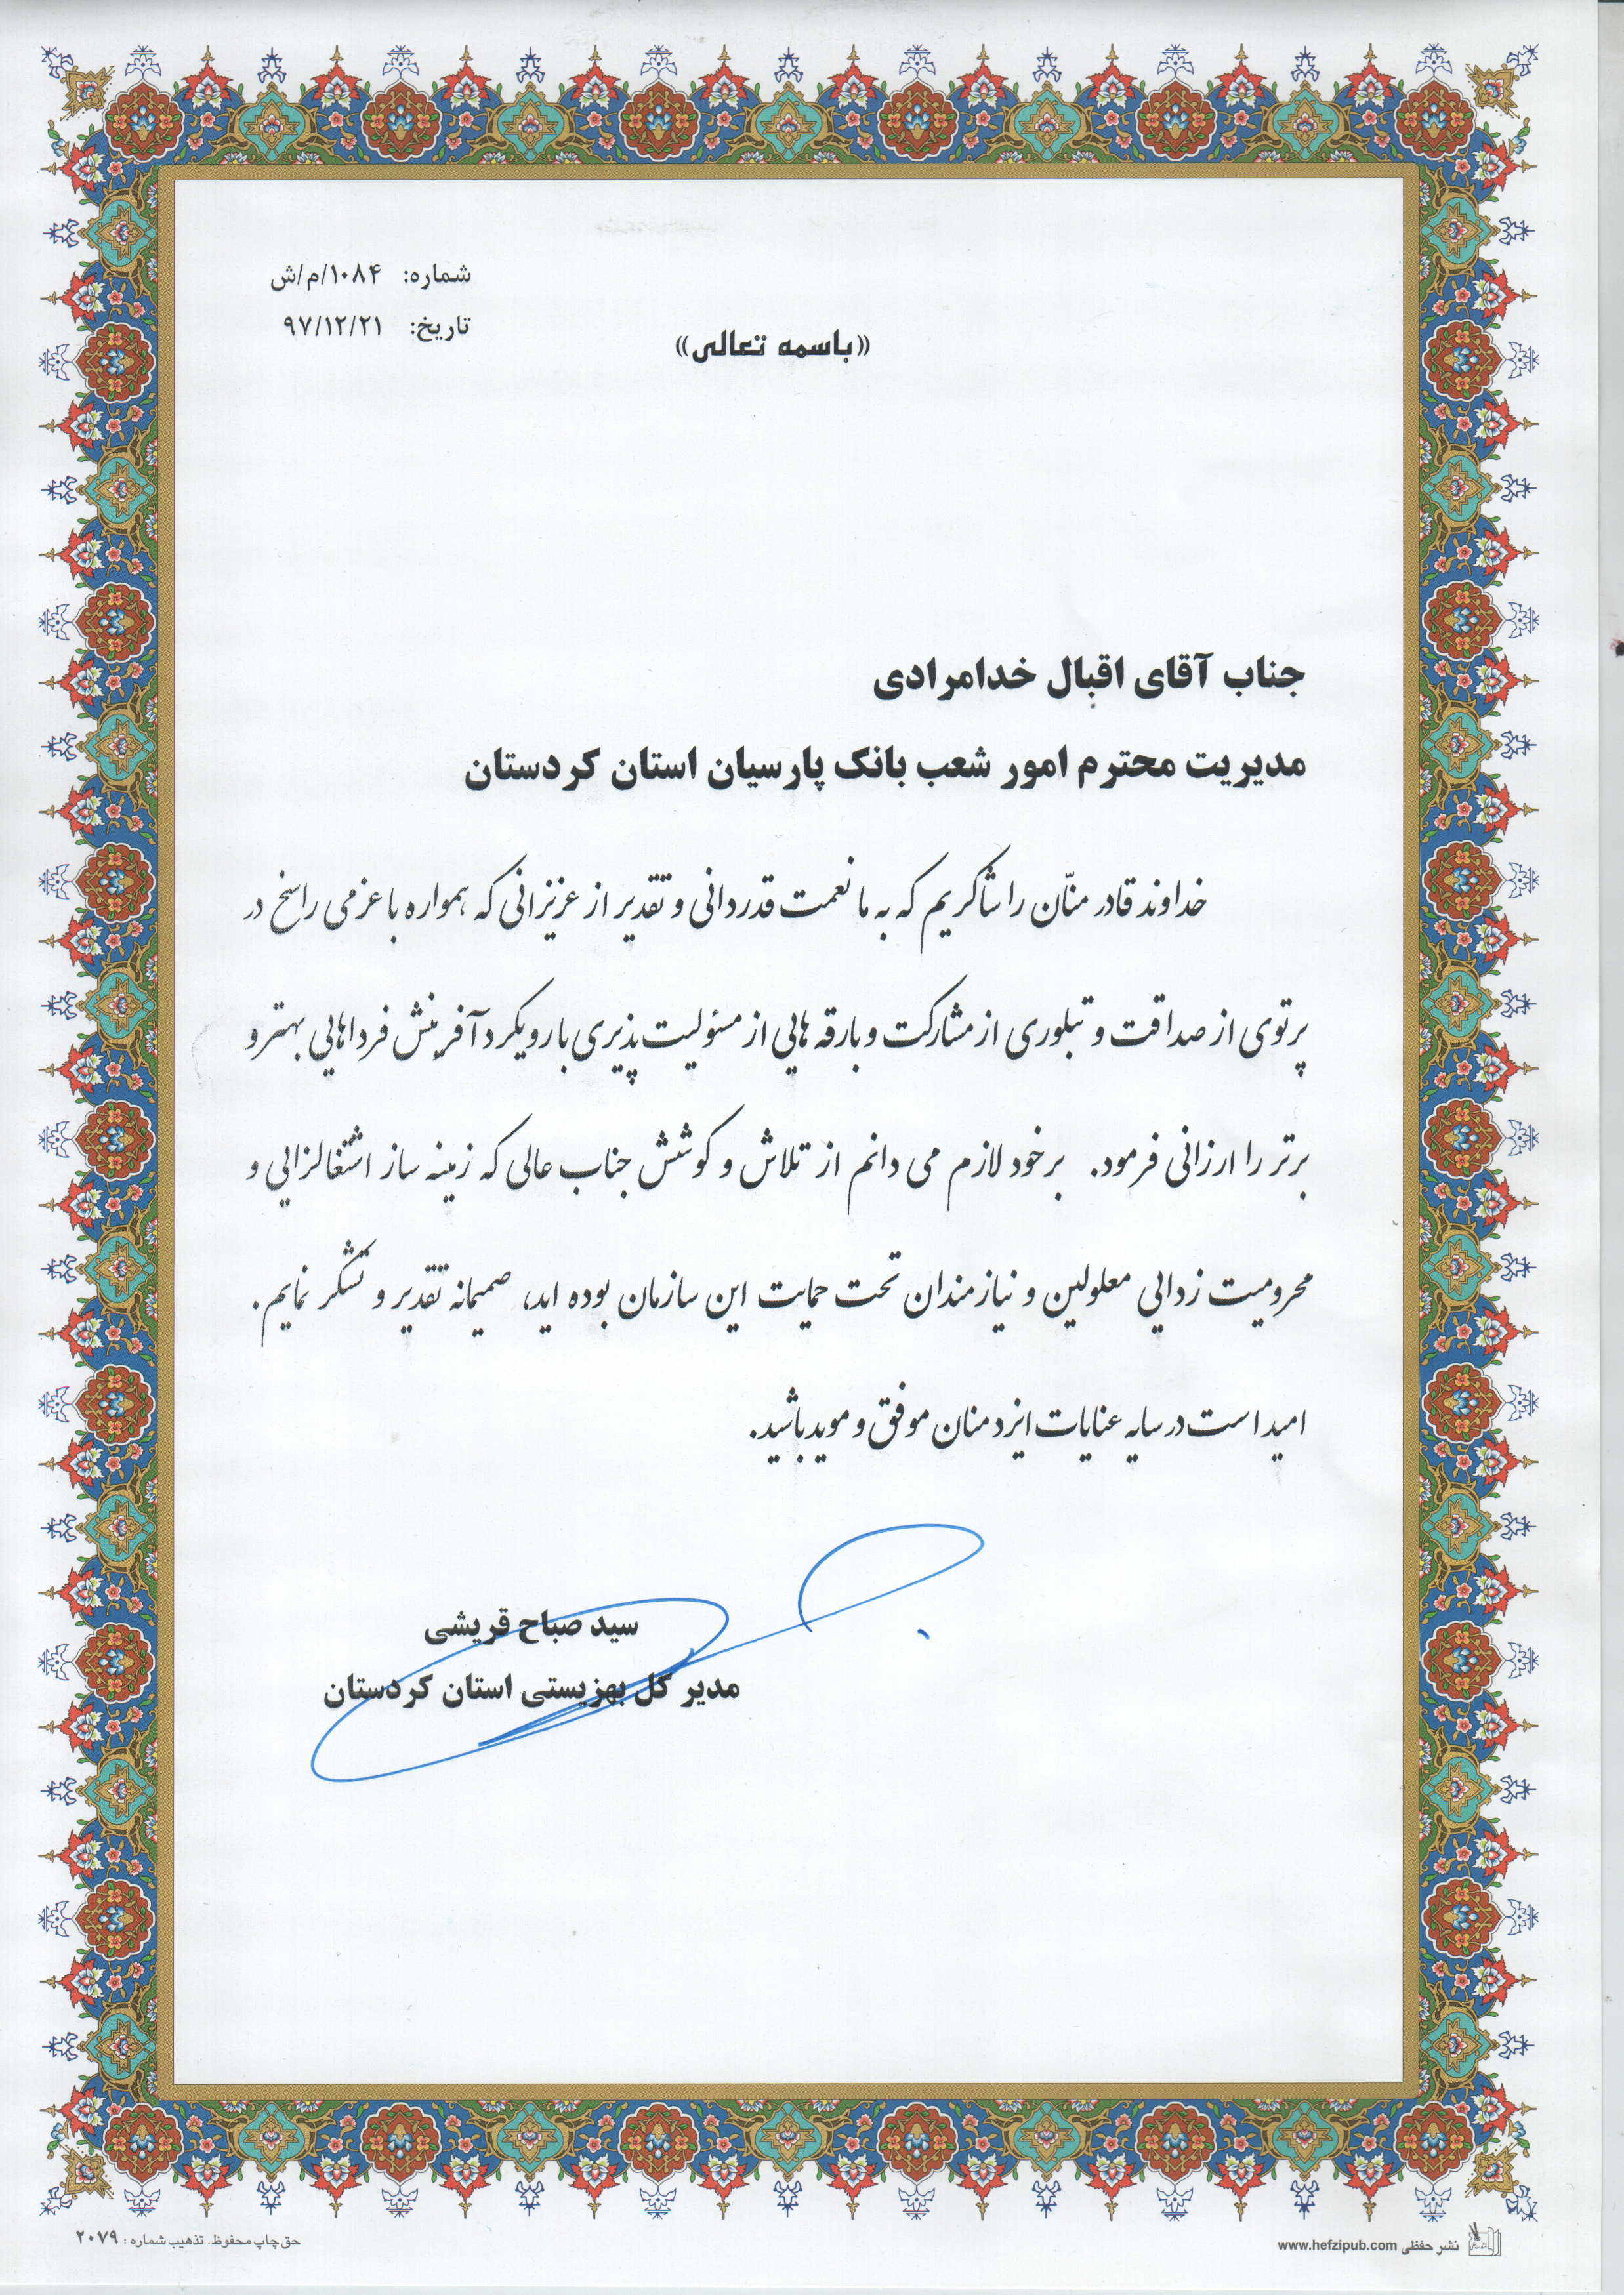 شماره: ۱۰۸۴/م/ش
تاریخ: ۹۷/۱۲/۲۱
«باسمه تعالی»
جناب آقای اقبال خدامرادی
مدیریت محترم امور شعب بانک پارسیان استان کردستان
خداوند قادر منّان را شاکریم که به ما نعمت قدردانی و تقدیر از عزیزانی که همواره با عزمی راسخ در
پرتوی از صداقت و تبلوری از مشارکت و بارقه هایی از مسئولیت پذیری با رویکرد آفرینش فرداهایی بهتر و
برتر را ارزانی فرمود. برخود لازم می دانم از تلاش و کوشش جناب عالی که زمینه ساز اشتغالزایی و
محرومیت زدایی معلولین و نیازمندان تحت حمایت این سازمان بوده اید، صمیمانه تقدیر و تشکر نمایم.
امید است در سایه عنایات ایزد منان موفق و موید باشید.
سید صباح قریشی
مدیر کل بهزیستی استان کردستان
نشر حفظی www.hefzipub.com
حق چاپ محفوظ. تذهیب شماره: ۲۰۷۹